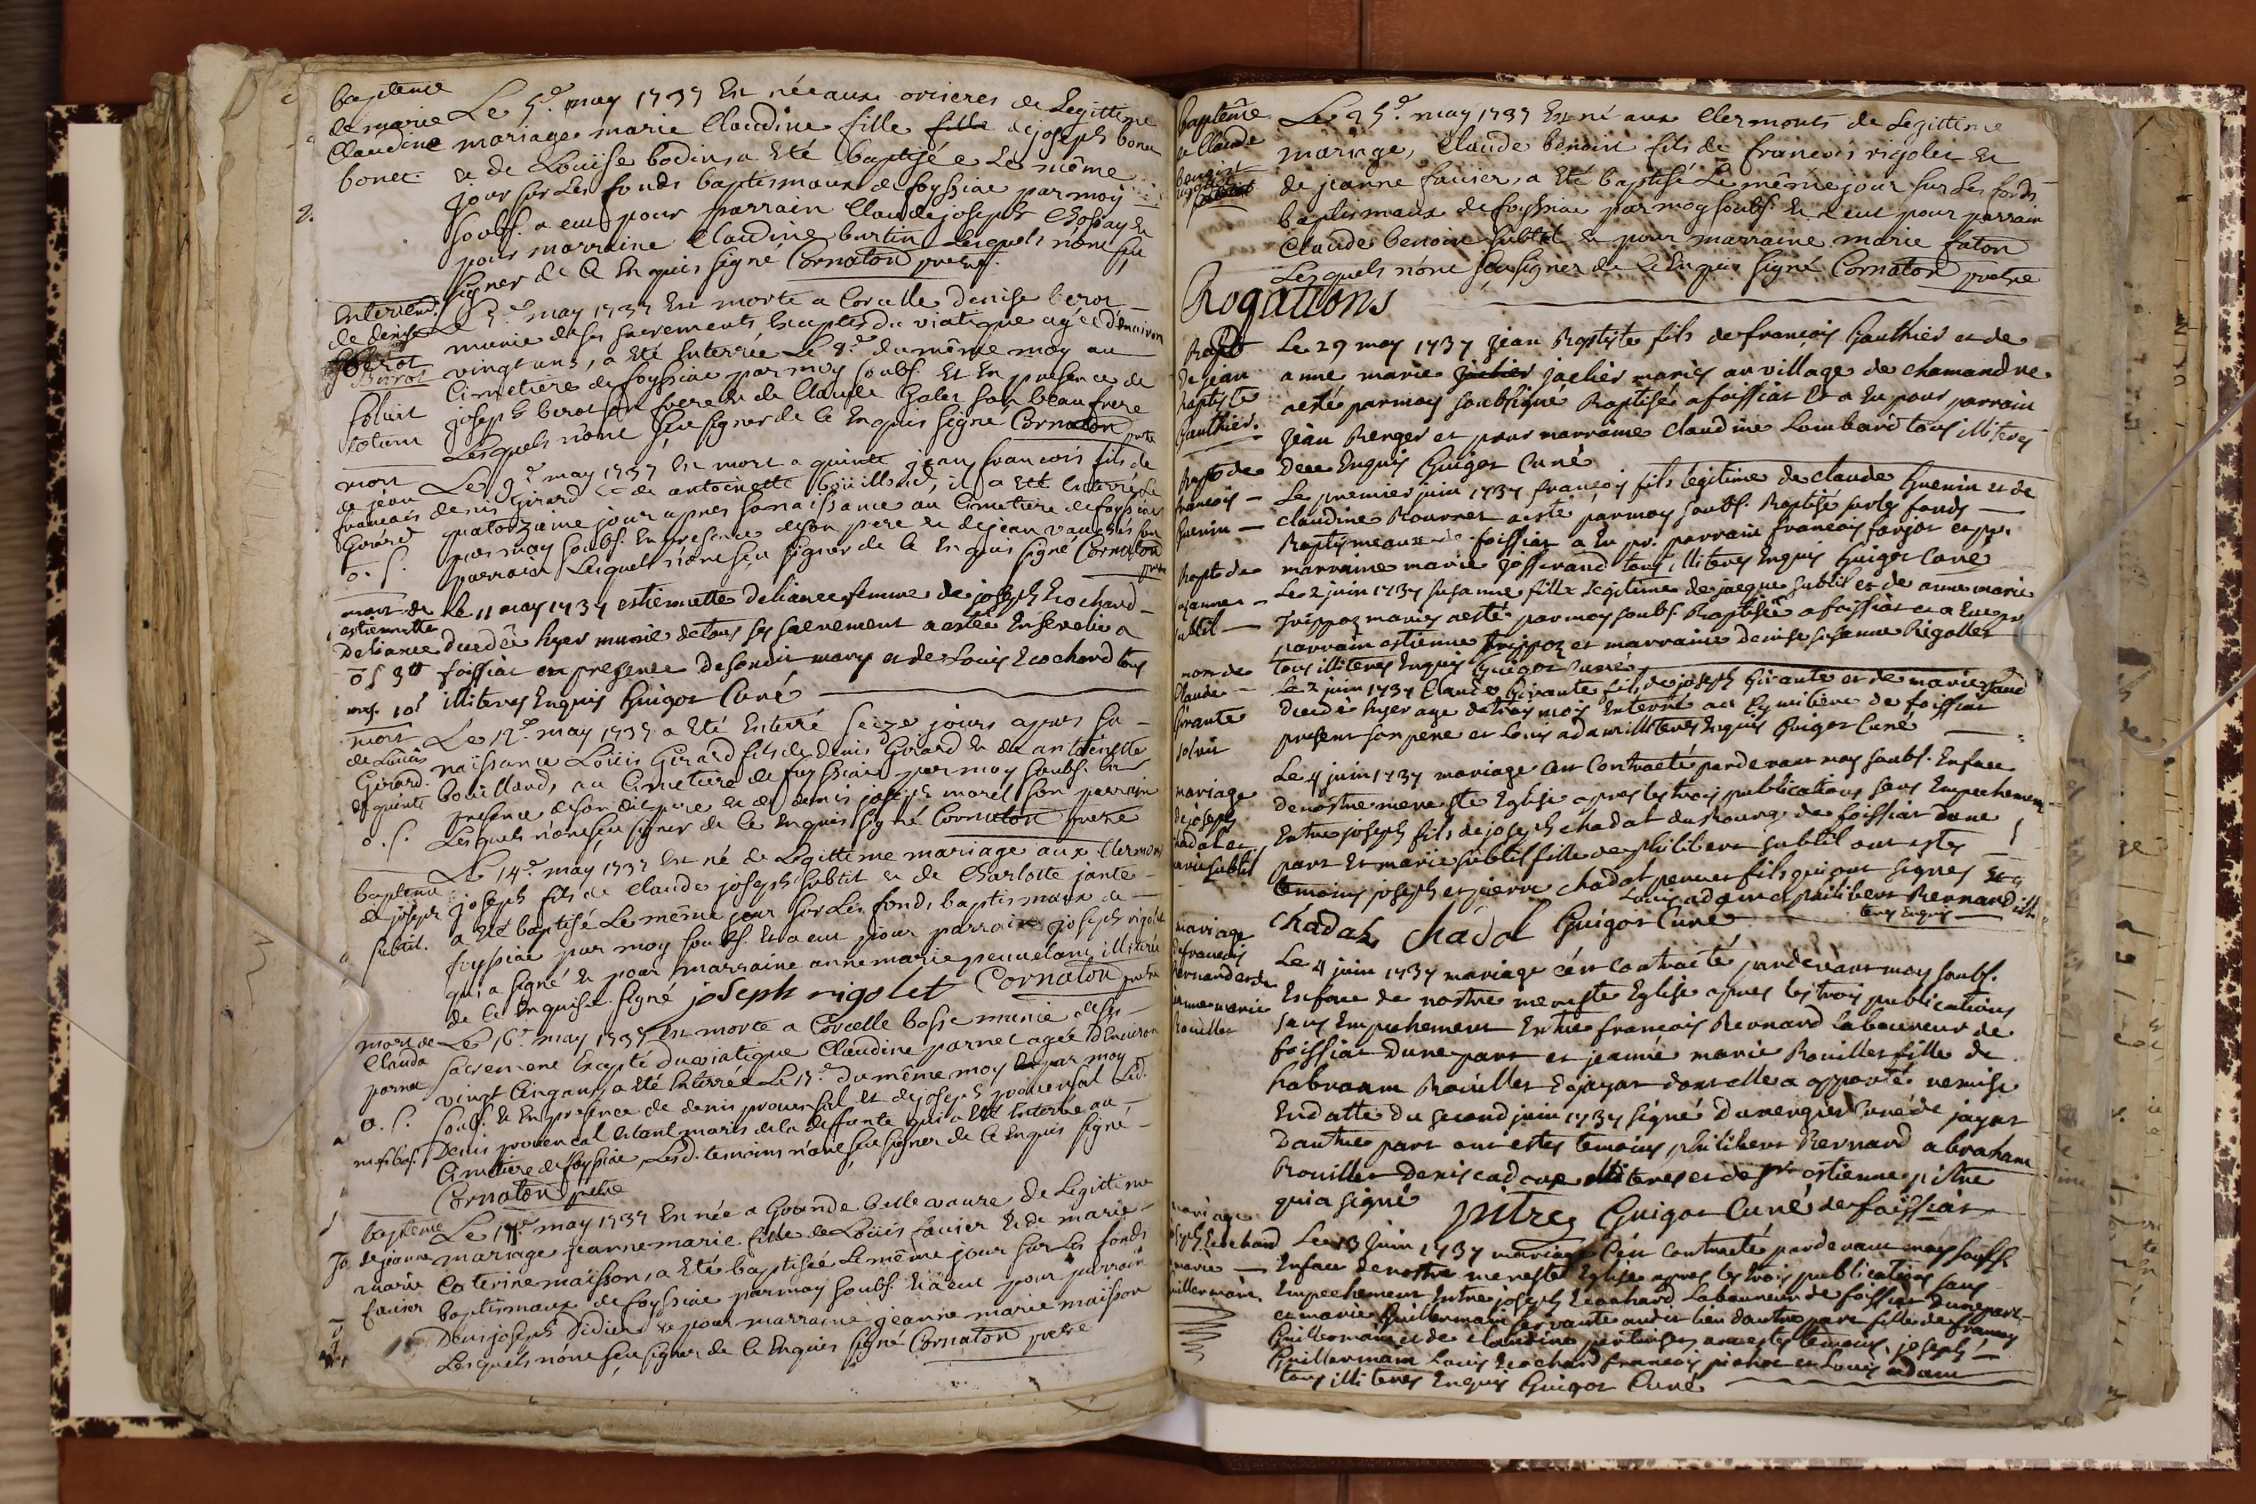 bapteme
de marie
Claudine
bonet.
Le 5e may 1737 Est née aux orcieres de Legittime
mariage marie Claudine fille fille de joseph bonet
et de Louise bodin, a Eté baptisée Le même
jour sur Les fonds baptismaux de foyssiac par moy
soubs. a eut pour parrain Claude joseph Chossay et
pour marraine Claudine burtin Lesquels n'ont sçu
signer de ce Enquis signé Cornaton pretre.
Enterrem.
de denise
berot
Birot
solvit
totum
Le 7e may 1737 Est morte a Corcelle denise berot
munie de ses sacrements Exceptés du viatique agée d'environ
vingt ans, a Eté Enterrée Le 8e du même moy au
Cimetiere de foyssiac par moy soubs. Et En presence de
joseph berot son frere et de Claude Galet son beau frere
Lesquels n'ont sçu signer de ce Enquis signé Cornaton pretre
mort
de jean
francois
Girard
o. s.
Le 9e may 1737 Est mort a quinte jean francois fils de
denis Girard et de antoinette boüilland, il a Eté Enterré Le
quatorzieme jour apres sa naissance au Cimetiere de foyssiac
par moy soubs. En presence de son pere et de jean vauchés son
parrain Lesquels n'ont sçu signer de ce Enquis signé Cornaton
pretre
mort de
estiennette
Deliance
o s 3tt
mes. 10s
Le 11 may 1737 estiennette Deliance femme de joseph Ecochard
decedée hyer munie de tous ses sacrement a estée Ensevelie a
foissiat en presence de sondit mary et de Louis Ecochard tous
illiterés Enquis Guigot Curé
mort
de Loüis
Girard.
de quinte
o. s.
Le 12e may 1737 a Eté Enterré seize jours apres sa
naissance Loüis Girard fils de denis Girard et de antoinette
boüilland, au Cimetiere de foyssiac par moy soubs. En
presence de son dit pere et de denis joseph morel son parrain
Lesquels n'ont sçu signer de ce Enquis signé Cornaton pretre
bapteme
de joseph
subtil.
Le 14e may 1737 Est né de Legittime mariage aux Clermons
joseph fils de Claude joseph subtil et de Charlotte jante
a Eté baptisé Le même jour sur Les fonds baptismaux de
foyssiac par moy soubs. Et a eut pour parrain joseph rigolet
qui a signé et pour marraine anne marie peuvelang illiterée
de ce Enquise. signé joseph rigolet Cornaton pretre
mort de
Clauda
parnet
o. s.
Le 16e may 1737 Est morte a Corcelle basse munie de ses
sacrement Excepté du viatique Claudine parnet agée D'environ
vingt Cinq ans, a Eté Enterrée Le 17e du même moy par moy
soubs. Et En presence de denis provensal Et de joseph provensal Led.
Denis provencal Etant maris de la deffunte qui a Eté Enterrée au
Cimetiere de foyssiac, Lesd. temoins n'ont sçu signer de ce Enquis signé
Cornaton pretre
bapteme
de jeanne
marie
favier
Le 17e may 1737 Est née a Grande bellevavre de Legittime
mariage jeanne marie fille de Loüis favier Et de marie
Caterine maisson, a Eté baptisée Le même jour sur Les fonds
baptismaux de foyssiac par moy soubs. Et a eut pour parrain
Denis joseph Didier et pour marraine jeanne marie maisson
Lesquels n'ont sçu signer de ce Enquis signé Cornaton pretre
baptême
de Claude
benoist
Le 25e may 1737 Est né aux Clermonts de Legittime
mariage, Claude benoist fils de francois rigolet Et
de jeanne favier, a Eté baptisé Le même jour sur Les fonds
baptismaux de foyssiac par moy soubs. Et a eut pour parrain
Claude benoist subtil et pour marraine marie faton
Lesquels n'ont sçu signer de ce Enquis signé Cornaton pretre
Rogations
Bapt
De jean
Baptyste
Gauthier.
Le 29 may 1737 Jean Baptyste fils de francois Gauthier et de
anne marie jachier jachier mariés au village de chamandre
aesté par moy soubsigné Baptisé a foissiat Et a Eu pour parrain
Jean Berger et pour marraine Claudine Lombard tous illiterés
Dece Enquis Guigot Curé
Bapt de
francois
Guenin
Le premier juin 1737 francois fils legitime de Claude Guenin et de
Claudine Bournet aesté par moy soubs. Baptisé sur les fonds
Baptismeaux de foissiat a Eu pr. parrain francois farjot et pr.
marraine marie josserand tous illiterés Enquis Guigot Curé
Bapt de
susanne
subtil
Le 2 juin 1737 susanne fille Legitime de jacque subtil et de anne marie
frippoz mariés aesté par moy soubs. Baptisée a foissiat et a Eu pr
parrain estienne frippoz et marraine denise susanne Rigollet
tous illiterés Enquis Guigot Curé
mort de
Claude
Girante
solvit
Le 2 juin 1737 Claude Girante fils de joseph Girante et de marie
Decedé hyer agé de trois mois Enterré au Cymitiere de foissiat
present son pere et Louis adam illiterés Enquis Guigot Curé
mariage
de joseph
chadal et
marie subtil
Le 4 juin 1737 mariage cest Contracté pardevant moy soubs. Enface
de nostre mere ste Eglise apres les trois publications sans Empechement
Entre joseph fils de joseph chadal du Bourg de foissiat dune
part Et marie subtil fille de philibert subtil ont estés
temoins joseph et pierre chadal pere et fils qui ont signés Et
Louis adam et philibert Bernard illi
terés Enquis
Chadal chadal Guigot Curé
mariage
de francois
Bernard et de
jeanne marie
Rouillet
Le 4 juin 1737 mariage cest Contracté pardevant moy soubs.
Enface de nostre mere ste Eglise apres les trois publications
sans Empechement Entre francois Bernard laboureur de
foissiat dune part et jeanne marie Rouillet fille de
habraam Rouillet de jayat dont elle a apporté remise
Endatte du second juin 1737 signé Duvergier Curé de jayat
Dautre part ont estés temoins philibert Bernard abraham
Rouillet Denis cadoux illiterés et de sr estienne pitre
qui a signé Pitre Guigot Curé de foissiat
mariage
joseph Ecochard
marie
Guillermain
Le 13 Juin 1737 mariage cest Contracté pardevant moy soubs.
Enface de nostre mere ste Eglise apres les trois publications sans
Empechement Entre joseph Ecochard Laboureur de foissiat dune part
et marie Guillermain servante audit lieu dautre part fille de francois
Guillermain et de Claudine ont estés temoins joseph
Guillermain Louis Ecochard francois pichot et Louis adam
tous illiterés Enquis Guigot Curé